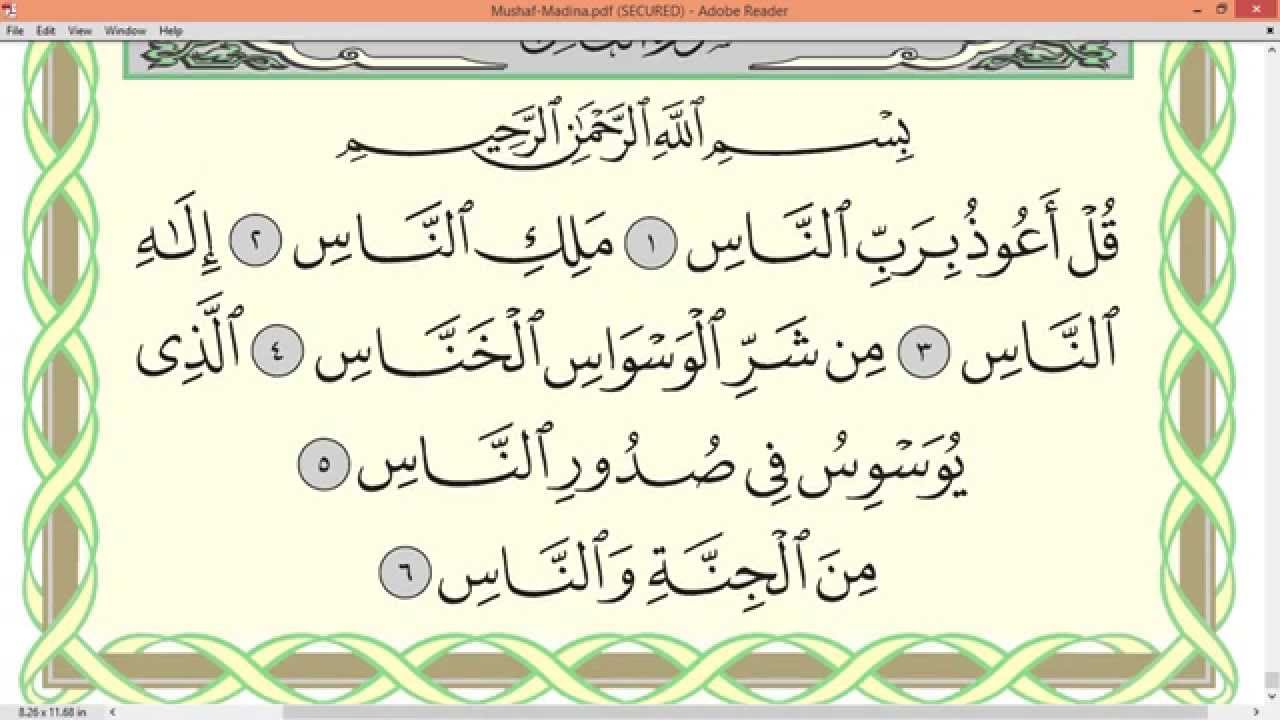 Mushaf-Madina.pdf (SECURED) - Adobe Reader
File Edit View Window Help
بِسْمِ ٱللَّهِ ٱلرَّحْمَٰنِ ٱلرَّحِيمِ
قُلْ أَعُوذُ بِرَبِّ ٱلنَّاسِ ١ مَلِكِ ٱلنَّاسِ ٢ إِلَٰهِ
ٱلنَّاسِ ٣ مِن شَرِّ ٱلْوَسْوَاسِ ٱلْخَنَّاسِ ٤ ٱلَّذِى
يُوَسْوِسُ فِى صُدُورِ ٱلنَّاسِ ٥
مِنَ ٱلْجِنَّةِ وَٱلنَّاسِ ٦
8.26 x 11.68 in